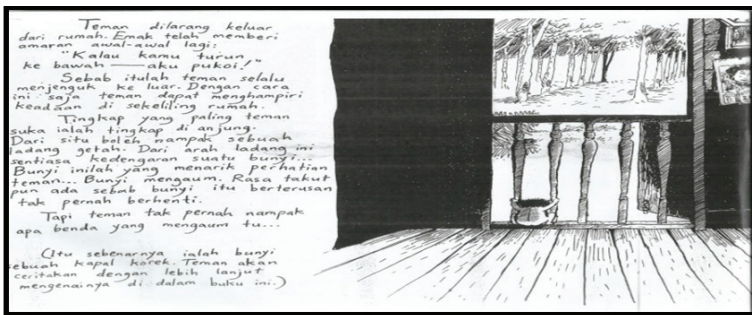 Teman dilarang keluar
dari rumah. Emak telah memberi
amaran awal-awal lagi:
"Kalau kamu turun
ke bawah — aku pukoi!"
Sebab itulah teman selalu
menjenguk ke luar. Dengan cara
ini saja teman dapat menghampiri
keadaan di sekeliling rumah.
Tingkap yang paling teman
suka ialah tingkap di anjung.
Dari situ boleh nampak sebuah
ladang getah. Dari arah ladang ini
sentiasa kedengaran suatu bunyi...
Bunyi inilah yang menarik perhatian
teman... Bunyi mengaum. Rasa takut
pun ada sebab bunyi itu berterusan
tak pernah berhenti.
Tapi teman tak pernah nampak
apa benda yang mengaum tu...
(Itu sebenarnya ialah bunyi
sebuah kapal korek. Teman akan
ceritakan dengan lebih lanjut
mengenainya di dalam buku ini.)